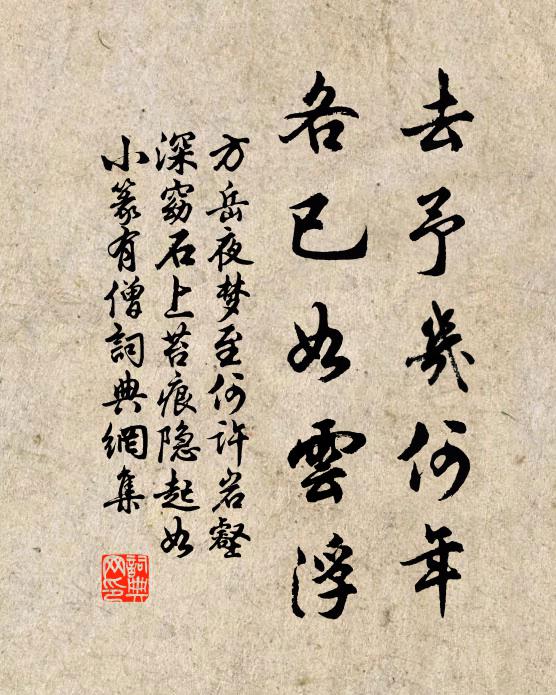 去予幾何年
各已如雲浮
方岳夜梦至何许岩壑
深窈石上苔痕隐起如
小篆有僧詞典網集
詞典
网印